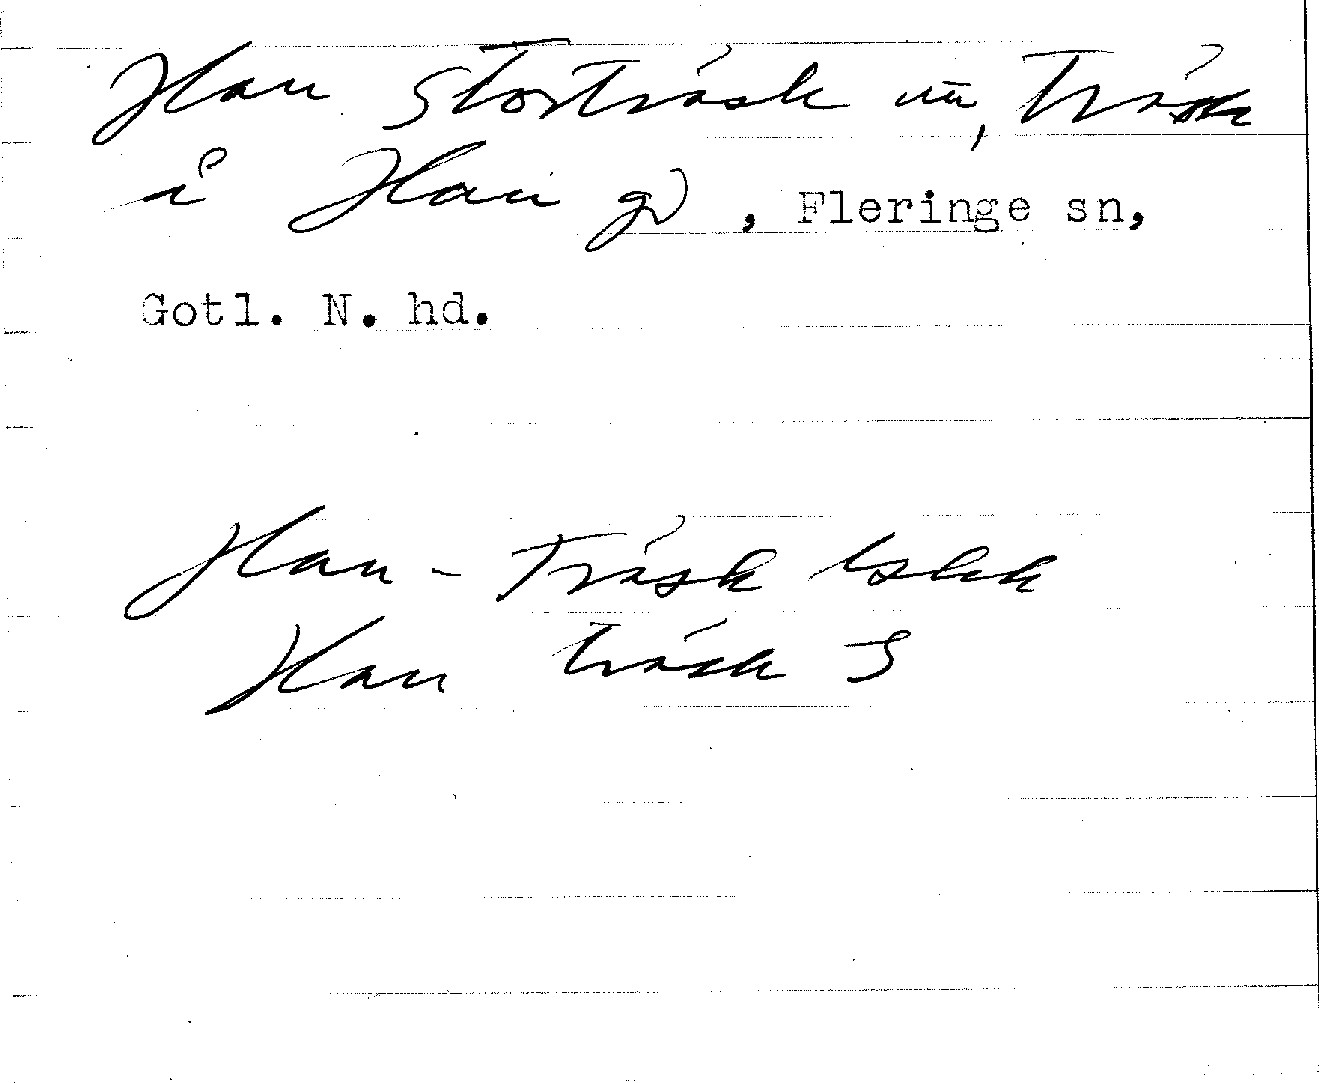 Hau Storträsk nu, Träsk
å Hau gd, Fleringe sn,
Gotl. N. hd.
Hau-Träsk
Hau träsk S